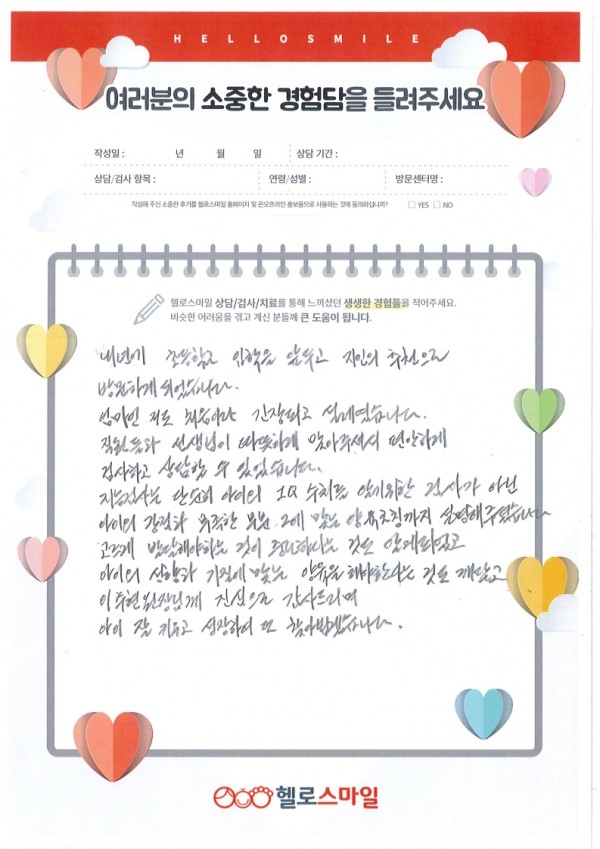 HELLOSMILE
여러분의 소중한 경험담을 들려주세요
작성일 : 년 월 일 상담 기간 :
상담/검사 항목 : 연령/성별 : 방문센터명 :
작성해 주신 소중한 후기를 헬로스마일 홈페이지 및 온오프라인 홍보용으로 사용하는 것에 동의하십니까? □ YES □ NO
헬로스마일 상담/검사/치료를 통해 느끼셨던 생생한 경험들을 적어주세요.
비슷한 어려움을 겪고 계신 분들께 큰 도움이 됩니다.
내년에 초등학교 입학을 앞두고 지인의 추천으로
방문하게 되었습니다.
엄마인 저도 처음이라 긴장되고 설레였습니다.
직원분과 선생님이 따뜻하게 맞아주셔서 편안하게
검사하고 상담할 수 있었습니다.
지능검사는 단순히 아이의 IQ 수치를 알기위한 검사가 아닌
아이의 강점과 부족한 부분, 그에 맞는 양육코칭까지 설명해주셨습니다
고르게 발달해야하는 것이 중요하다는 것도 알게되었고
아이의 성향과 기질에 맞는 양육을 해야한다는 것도 깨닫고
원장님께 진심으로 감사드리며
아이 잘 키우고 성장하여 또 찾아뵙겠습니다.
헬로스마일